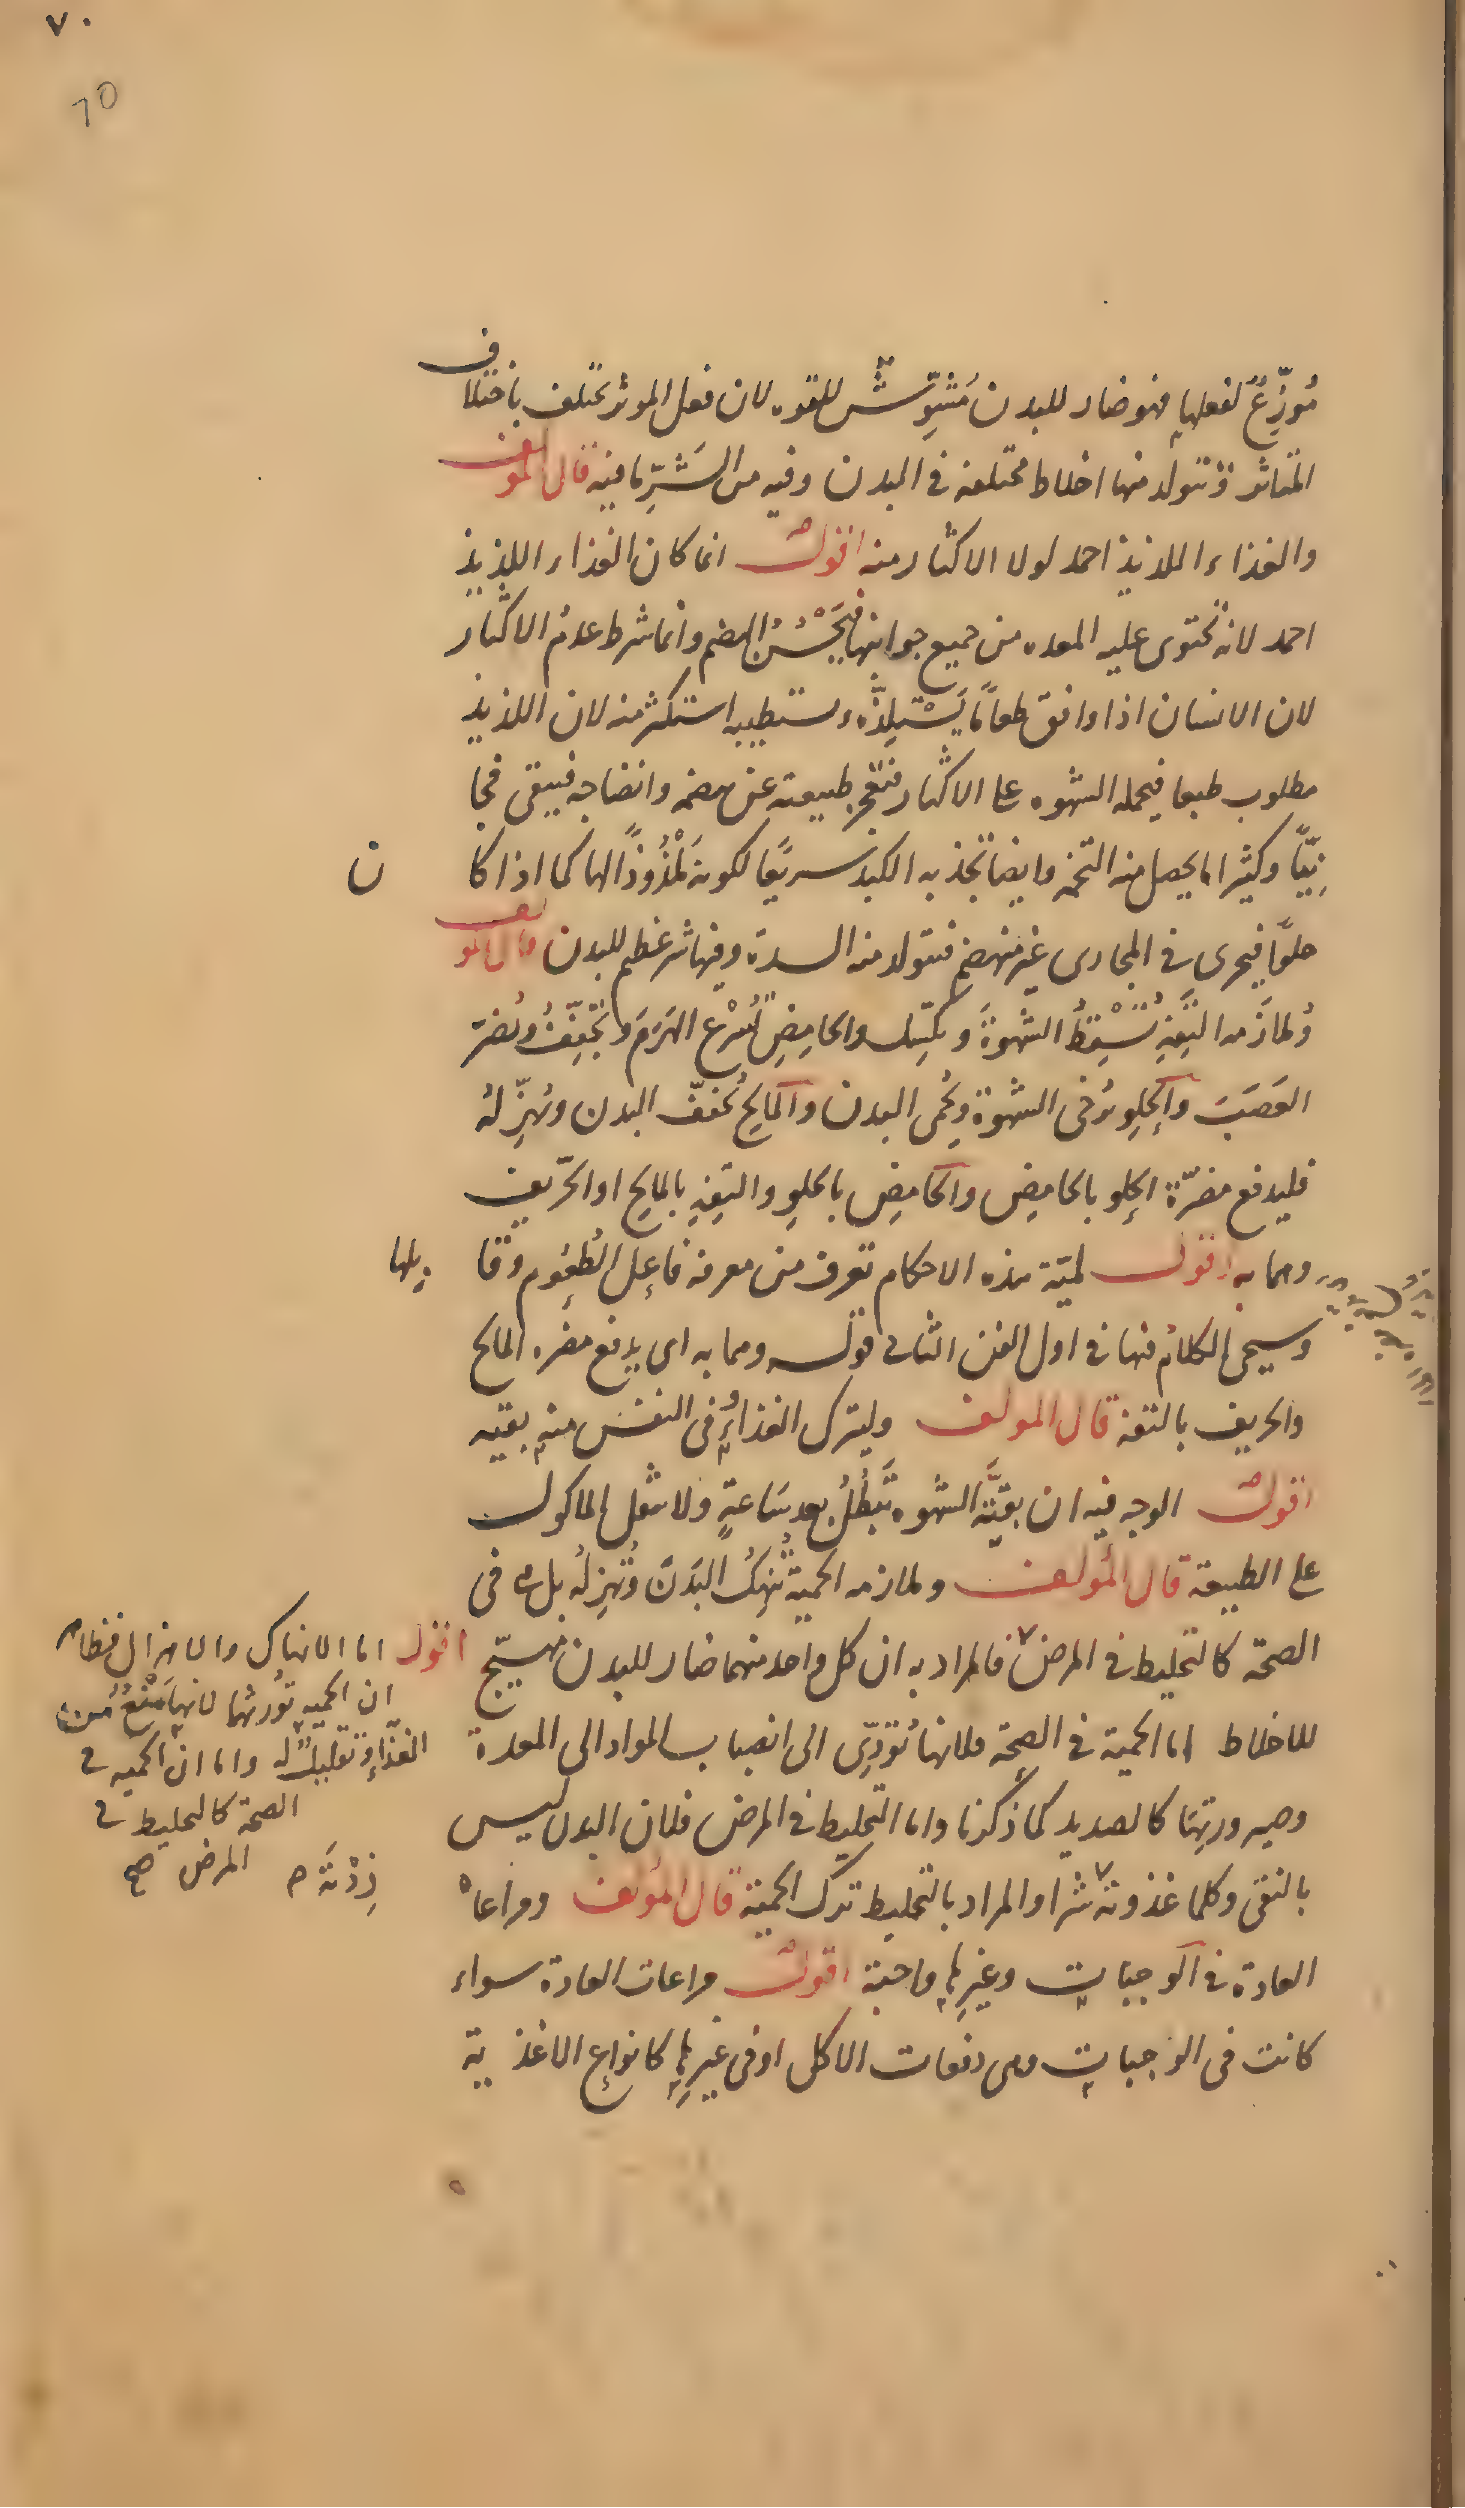 ٧٠
70
مُوزِّعٌ لفعلها فهو ضار للبدن مُشَوِّش للقوه لان فعل الموثر يختلف باختلاف
المتاثر وتتولد منها اخلاط مختلفه في البدن وفيه من الشَرِّ ما فيه قال المولف
والغذاء اللذيذ احمد لولا الاكثار منه اقول انما كان الغذاء اللذيذ
احمد لانه تحتوى عليه المعده من جميع جوانبها فيَحْسُنُ الهضم وانما شرط عدم الاكثار
لان الانسان اذا وافق طعامًا يَسْتَلِذُّه ويستطيبه استكثر منه لان اللذيذ
مطلوب طبعا فيحمله الشهوه على الاكثار فتعجز طبيعته عن هضمه وانضاجه فيبقى فجا
نِيًّا وكثيرا ما يحصل منه التخمه وايضا تجذبه الكبد سريعًا لكونه مَلْذُوذًا لها كما اذا كان
حلوًا فيجرى في المجارى غير منهضم فتتولد منه السدة وفيها شر عظيم للبدن قال المولف
وُملازَمه التَفِهِ تُسْقِطُ الشهوةَ وتكسِّل والحامِضِ تُسْرِع الهَرَمَ وتجَفِّفُ وتُضرّ
العَصَبَ والحلوِ تُرخى الشهوة وتُحمى البدن والمالحِ تُجفّف البدن وتُهزِلُه
فليدفع مضرّة الحلو بالحامِض والحامِض بالحلوِ والتفِهِ بالمالحِ او الحرّيف
وهما به اقول لميّة هذه الاحكام تعرف من معرفه فاعِل الطُعُوم وقابلها
وسيجى الكلام فيها في اول الفن الثانى قوله وهما به اى يدفع مضره المالح
والحريف بالتفه قال المولف وليترك الغذاءُ وفى النفس منه بقيه
اقول الوجه فيه ان بقيَّة الشهوه تَبْطُلُ بعد سَاعةٍ ولا يثقل الماكول
على الطبيعة قال المُولف وملازمه الحمية تُنْهِكُ البَدَنَ وتُهزِلُه بل هى فى
الصحة كالتخليط فى المرض فالمراد به ان كل واحد منهما ضار للبدن مُهيّج
للاخلاط اما الحمية فى الصِحّة فلانها تُؤدِّى الى انصباب المواد الى المعدة
وصيرورتها كالصديد كما ذكرنا واما التخليط فى المرض فلان البدن ليس
بالنقى وكلما غذوته شرا والمراد بالتخليط ترك الحمية قال المؤلف ومراعاة
العادة فى الوجبات وغيرها واجبة اقول مراعات العادة سواء
كانت فى الوجبات وهى دفعات الاكل او فى غيرها كانواع الاغذية
اقول اما الانهاك والاهزال فظاهر
ان الحميه تُورثهما لانها مَنْعٌ من
الغذاءِ وتقليلٌ له واما ان الحميه فى
الصحة كالتخليط فى
المرض صح
زِدْتَهُ